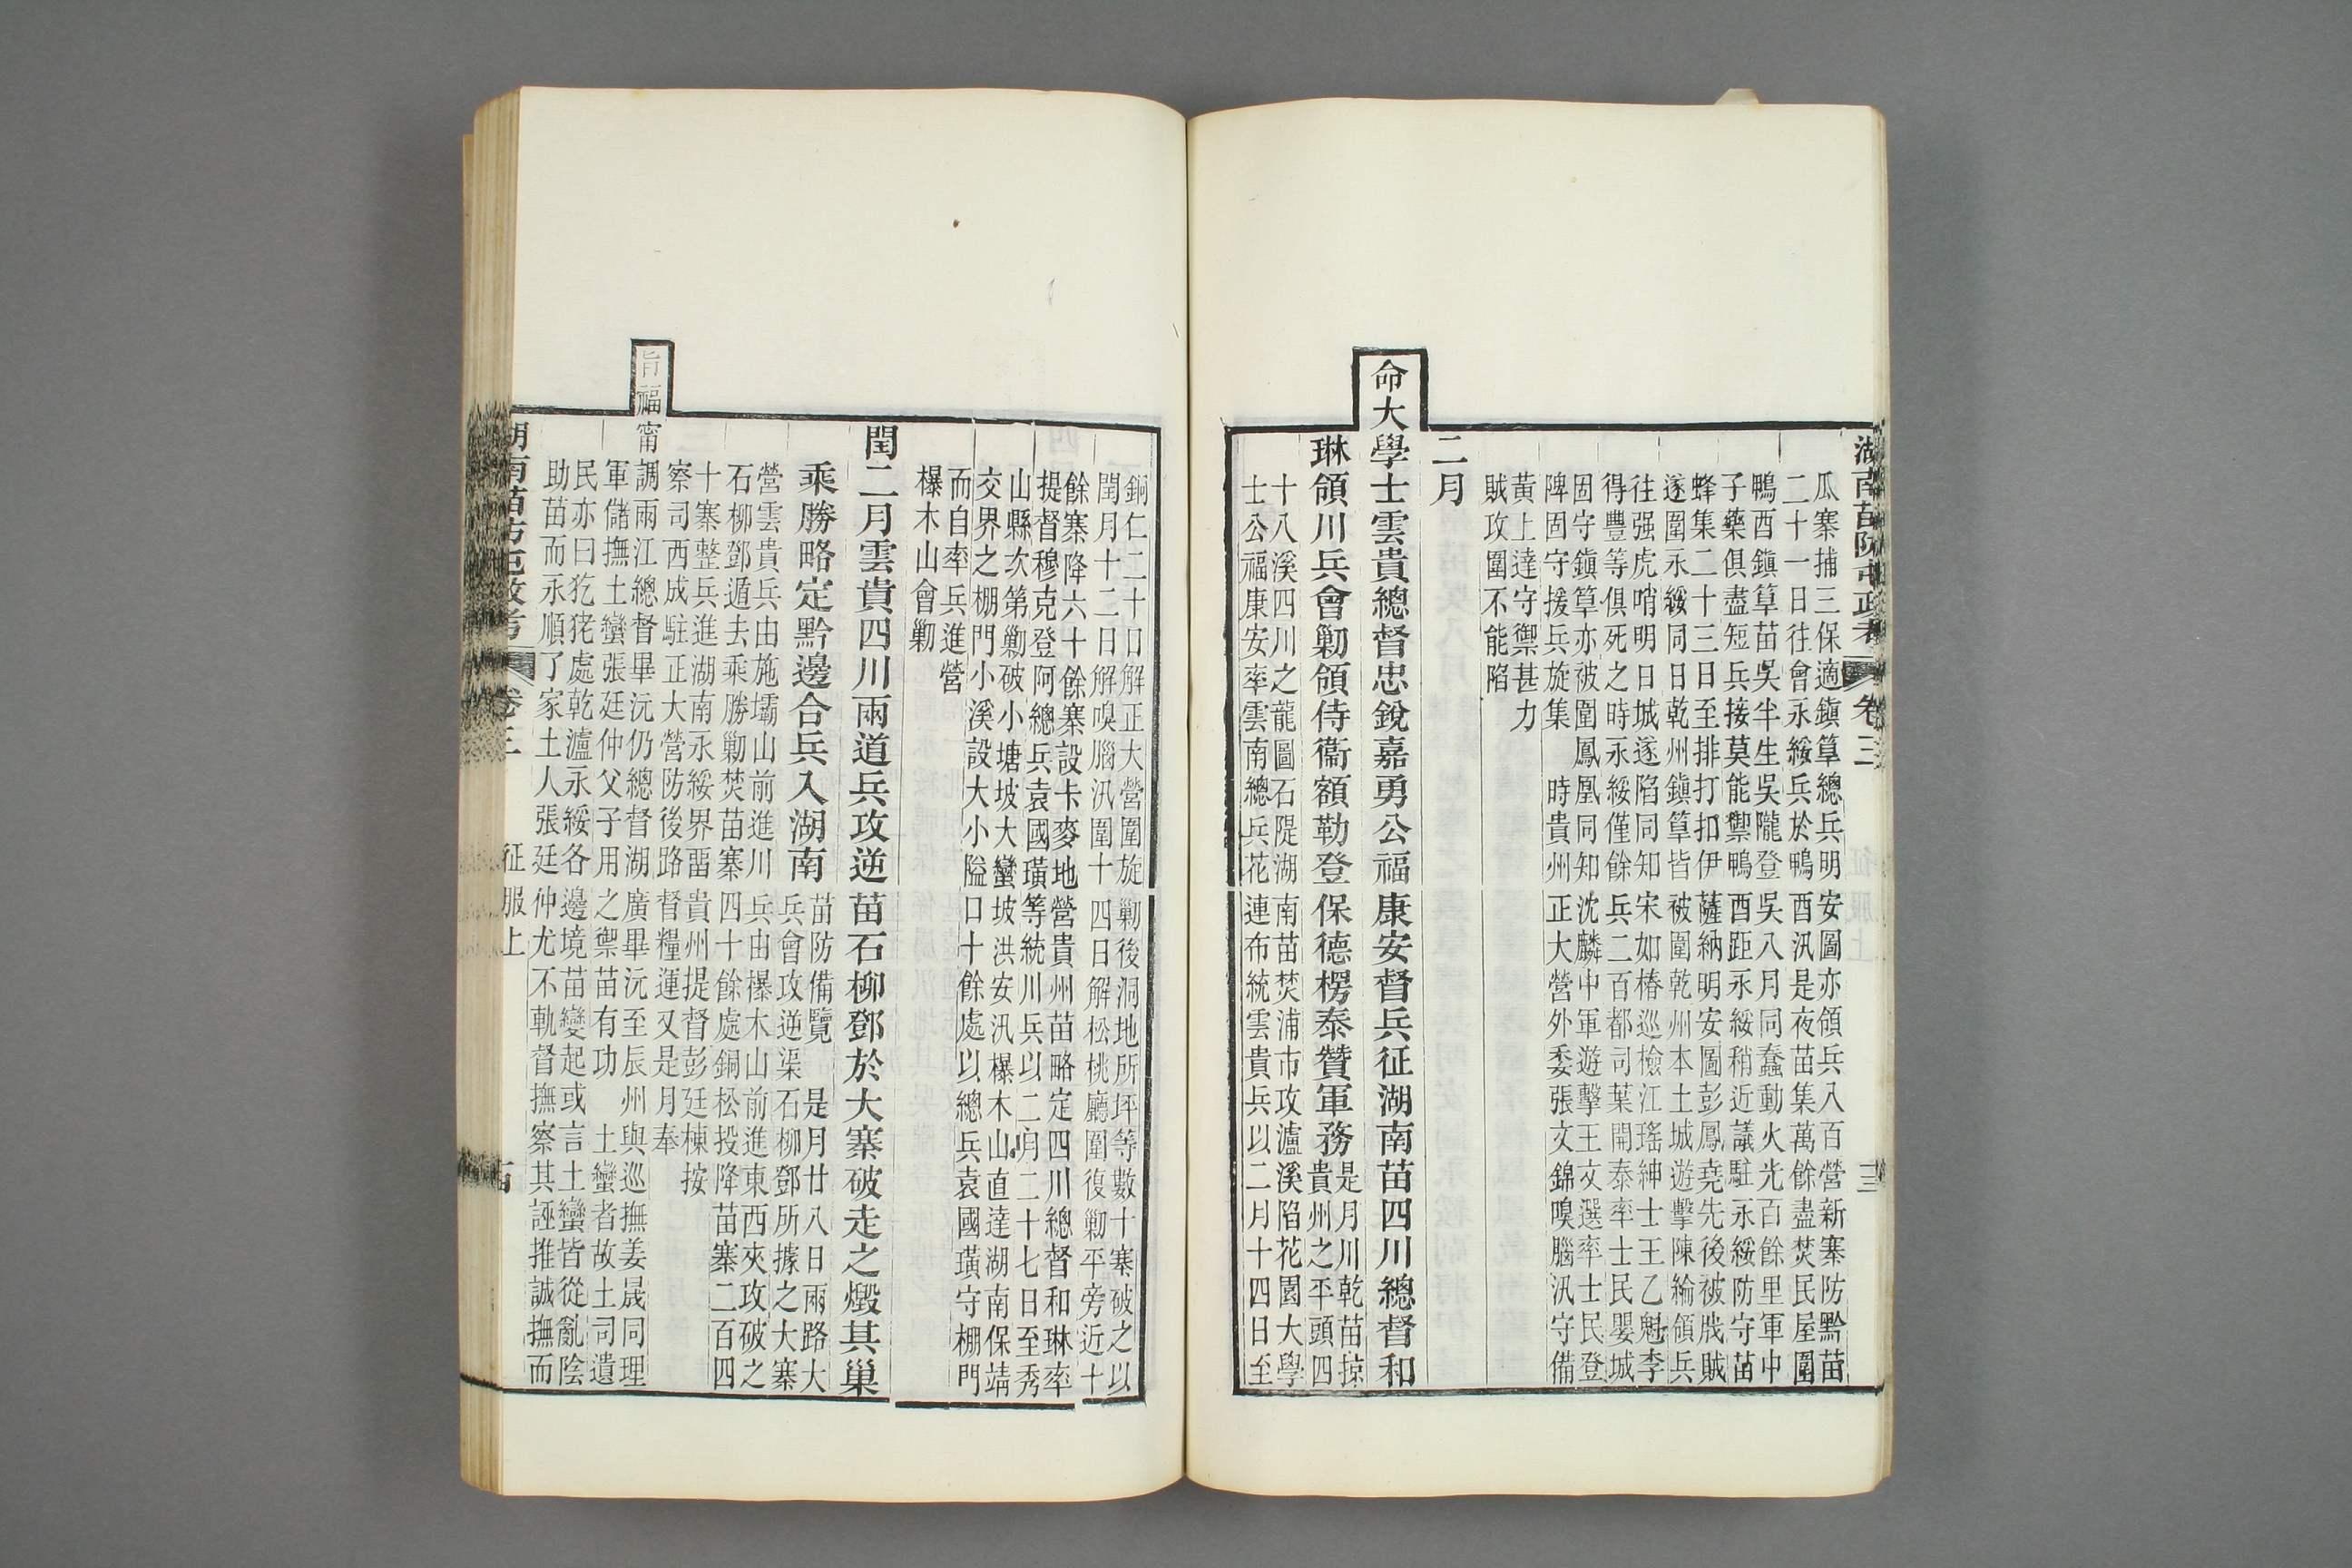 湖南苗防屯政考 卷三 三
瓜寨捕三保適鎮筸總兵明安圖亦領兵八百營新寨防黔苗
二十一日往會永綏兵於鴨酉汛是夜苗集萬餘盡焚民屋圍
鴨酉鎮筸苗吳半生吳隴登吳八月同蠢動火光百餘里軍中
子藥俱盡短兵接莫能禦鴨酉距永綏稍近議駐永綏防守苗
蜂集二十三日至排打扣伊薩納明安圖彭鳳堯先後被戕賊
遂圍永綏同日乾州鎮筸皆被圍乾州本土城遊擊陳綸領兵
往强虎哨明日城遂陷同知宋如椿巡檢江瑤紳士王乙魁李
得豐等俱死之時永綏僅餘兵二百都司葉開泰率士民嬰城
固守鎮筸亦被圍鳳凰同知沈麟中軍遊擊王文選率士民登
陴固守援兵旋集 時貴州正大營外委張文錦嗅腦汛守備
黃上達守禦甚力
賊攻圍不能陷
二月
命大學士雲貴總督忠銳嘉勇公福康安督兵征湖南苗四川總督和
琳領川兵會勦領侍衞額勒登保德楞泰贊軍務
是月川乾苗掠
貴州之平頭四
十八溪四川之龍圖石隄湖南苗焚浦市攻瀘溪陷花園大學
士公福康安率雲南總兵花連布統雲貴兵以二月十四日至
銅仁二十日解正大營圍旋勦後洞地所坪等數十寨破之以
閏月十二日解嗅腦汛圍十四日解松桃廳圍復勦平旁近十
餘寨降六十餘寨設卡麥地營貴州苗略定四川總督和琳率
提督穆克登阿總兵袁國璜等統川兵以二月二十七日至秀
山縣次第勦破小塘坡大蠻坡洪安汛㯷木山直達湖南保靖
交界之棚門小溪設大小隘口十餘處以總兵袁國璜守棚門
而自率兵進營
㯷木山會勦
閏二月雲貴四川兩道兵攻逆苗石柳鄧於大寨破走之燬其巢
乘勝略定黔邊合兵入湖南
苗防備覽 是月廿八日兩路大
兵會攻逆渠石柳鄧所據之大寨
營雲貴兵由施壩山前進川兵由㯷木山前進東西夾攻破之
石柳鄧遁去乘勝勦焚苗寨四十餘處銅松投降苗寨二百四
十寨整兵進湖南永綏界畱貴州提督彭廷棟按
察司西成駐正大營防後路督糧運又是月奉
旨福甯調兩江總督畢沅仍總督湖廣畢沅至辰州與巡撫姜晟同理
軍儲撫土蠻張廷仲父子用之禦苗有功 土蠻者故土司遺
民亦曰犵狫處乾瀘永綏各邊境苗變起或言土蠻皆從亂陰
助苗而永順了家土人張廷仲尤不軌督撫察其誣推誠撫而
湖南苗防屯政考 卷三 征服上